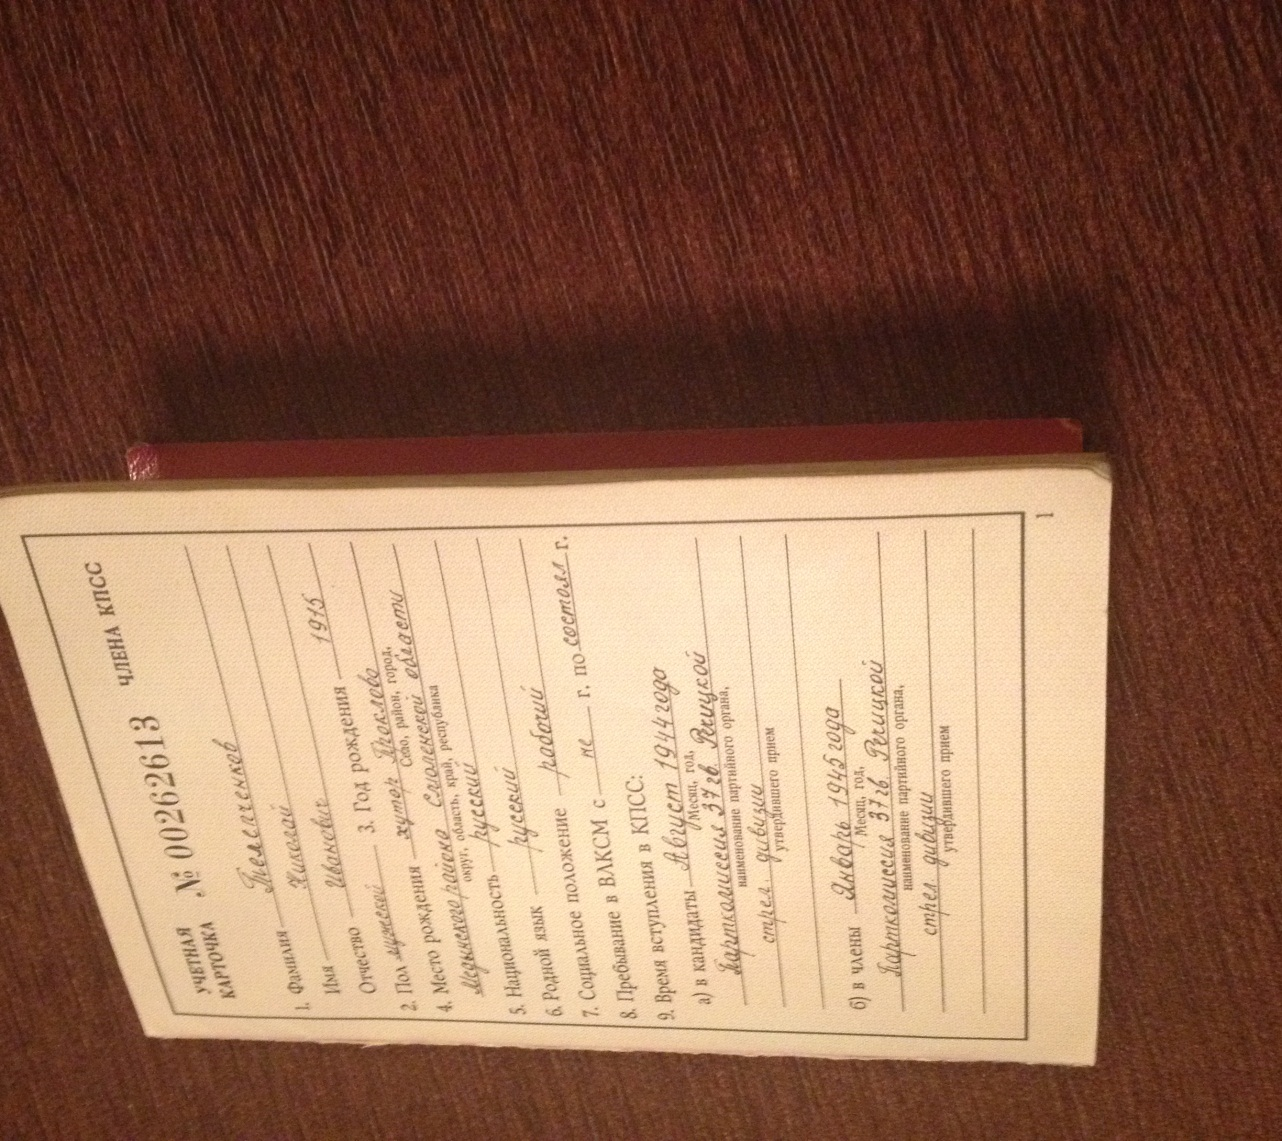 УЧЕТНАЯ КАРТОЧКА № 00262613 ЧЛЕНА КПСС
1. Фамилия
Имя Николай
Отчество Иванович
3. Год рождения 1915
2. Пол мужской
4. Место рождения хутор Проклово
Село, район, город,
Медынского района Смоленской области
округ, область, край, республика
5. Национальность русский
6. Родной язык русский
7. Социальное положение рабочий
8. Пребывание в ВЛКСМ с не г. по состоял г.
9. Время вступления в КПСС:
а) в кандидаты Август 1944 года
Месяц, год,
Парткомиссия 37 гв. Речицкой
наименование партийного органа,
стрел. дивизии
утвердившего прием
б) в члены Январь 1945 года
Месяц, год,
Парткомиссия 37 гв. Речицкой
наименование партийного органа,
стрел. дивизии
утвердившего прием
1